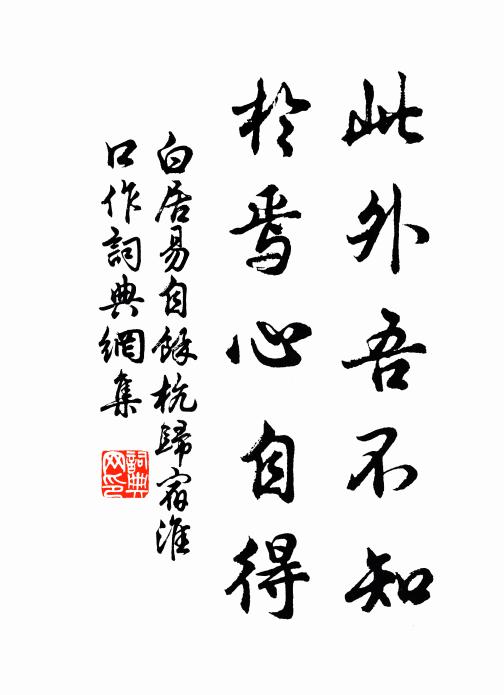 此外吾不知
於焉心自得
白居易自餘杭歸宿淮
口作詞典網集
詞典網印